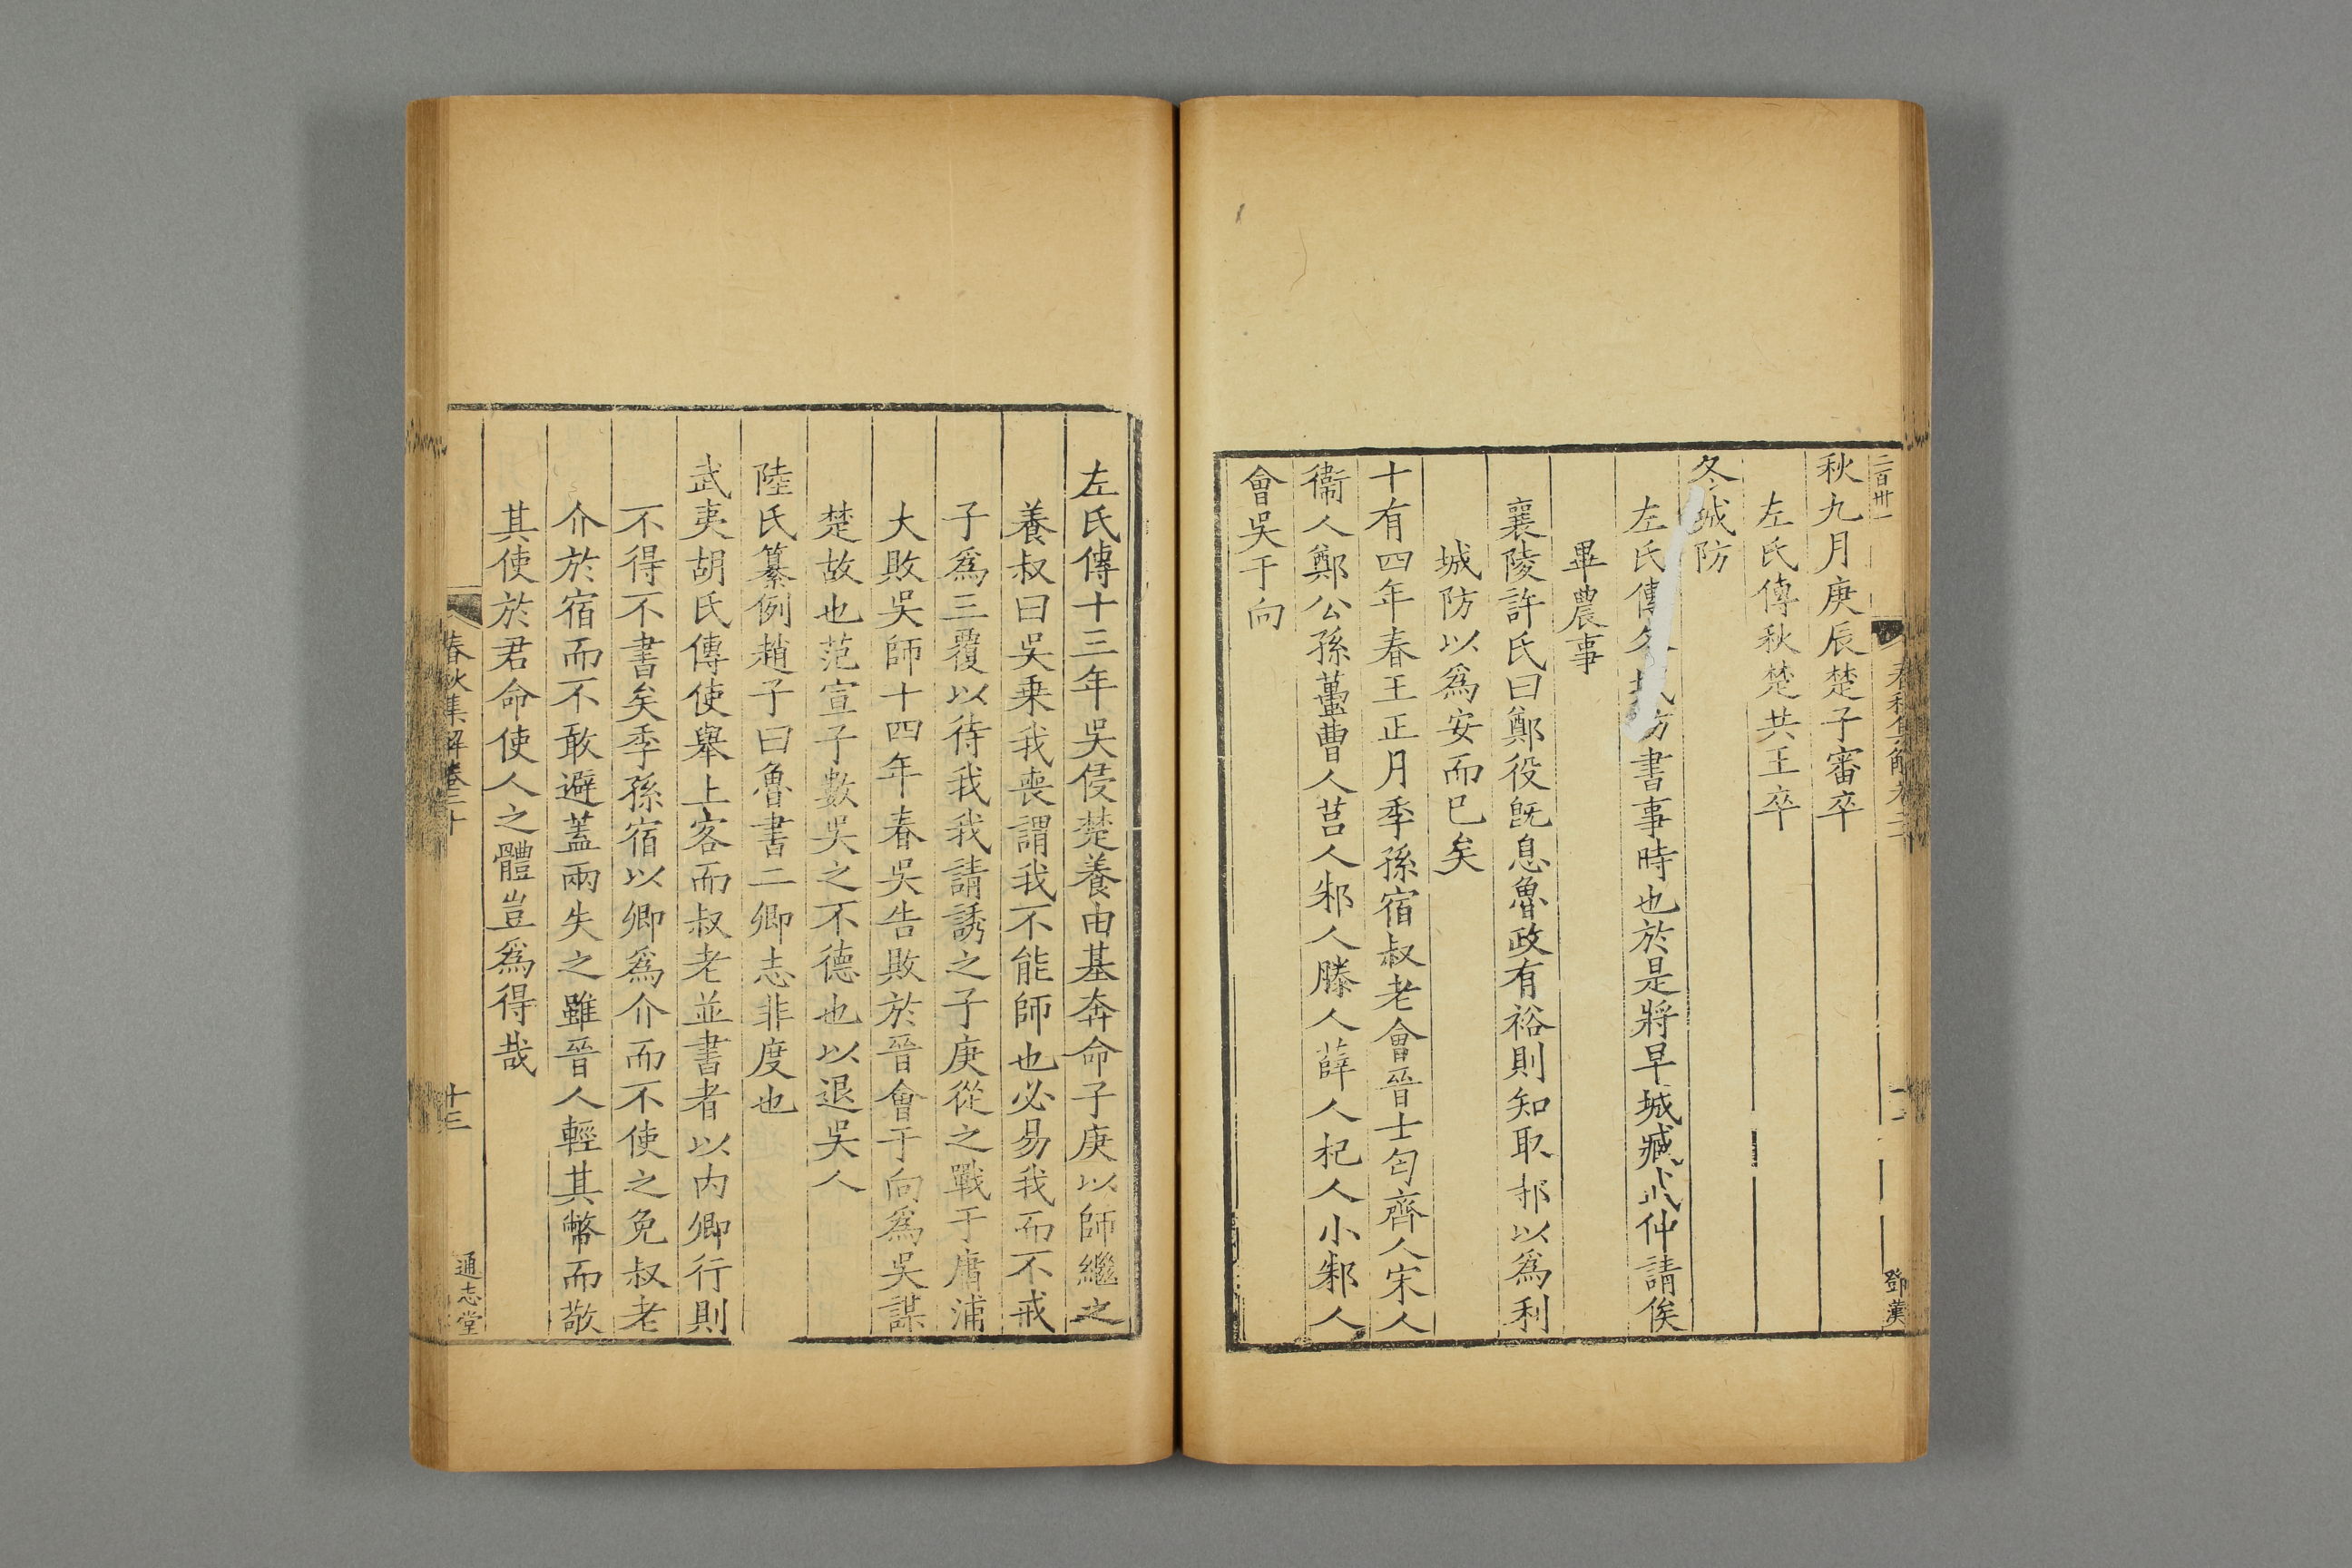 二百卅一
春秋集解卷二十
鄧漢
秋九月庚辰楚子審卒
左氏傳秋楚共王卒
冬城防
左氏傳冬城防書事時也於是將早城臧武仲請俟
畢農事
襄陵許氏曰鄭役旣息魯政有裕則知取邿以爲利
城防以爲安而已矣
十有四年春王正月季孫宿叔老會晉士匄齊人宋人
衞人鄭公孫蠆曹人莒人邾人滕人薛人杞人小邾人
會吳于向
左氏傳十三年吳侵楚養由基奔命子庚以師繼之
養叔曰吳乗我喪謂我不能師也必易我而不戒
子爲三覆以待我我請誘之子庚從之戰于庸浦
大敗吳師十四年春吳告敗於晉會于向爲吳謀
楚故也范宣子數吳之不德也以退吳人
陸氏纂例趙子曰魯書二卿志非度也
武夷胡氏傳使舉上客而叔老並書者以内卿行則
不得不書矣季孫宿以卿爲介而不使之免叔老
介於宿而不敢避蓋兩失之雖晉人輕其幣而敬
其使於君命使人之體豈爲得哉
春秋集解卷二十
十三
通志堂